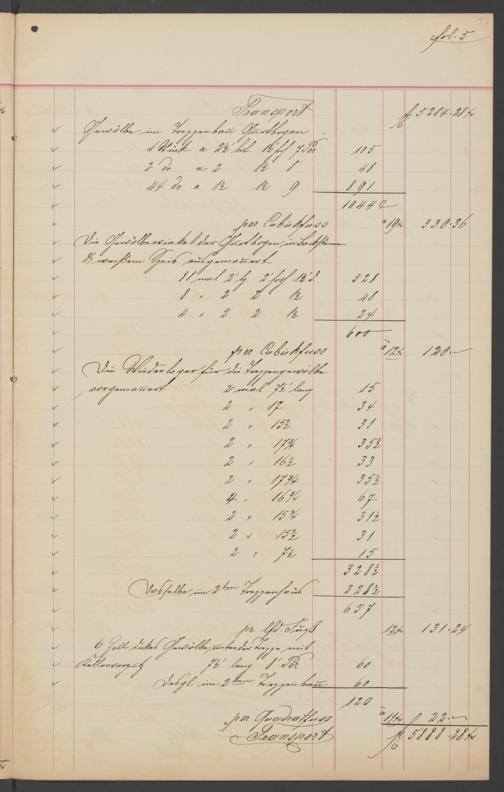 fol. 5
Transport f 5284.28x
Gewölbe im Treppenbau Gurtbogen.
4 Stück a 2½ br. 105
2 do a 2 12 8 48
44 do a 12 12 9 891
1044
per Cubickfuss a 19x 330.36
Die Gewölbewinkel der Gurtbogen, in Backsteinen
& weißem Speis ausgemauert
88 mal 2' lg 2' hoch 528
8 " 2 2 12 48
4 " 2 2 12 24
600
per Cubickfuss a 12x 120.-
Die Wiederlager für die Treppengewölbe
vorgemauert 2 mal 7½' lang 15
2 " 17 34
2 " 15½ 31
2 " 17¾ 35½
2 " 16½ 33
2 " 17¾ 35½
4 " 16¾ 67
2 " 15¾ 31½
2 " 15½ 31
2 " 7½ 15
328½
Dasselbe im 2ten Treppenhaus 328½
657
pr lfd. Fuß 12x 131.24
6 Zoll dickes Gewölbe, unter der Treppe mit
Kellerverputz 7½' lang 8' 60
Desgl. im 2ten Treppenbau 60
120
per Quadratfuss a 11x f 22.-
Transport f 5888.28x